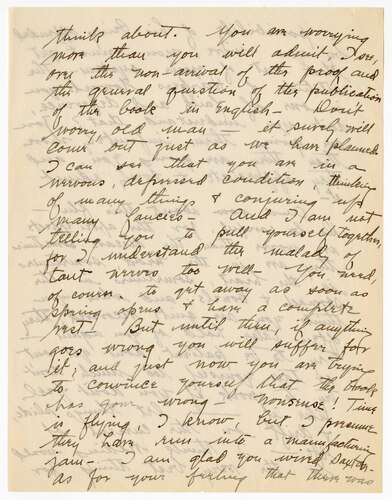 think about. You are worrying
more than you will admit I see,
over the non-arrival of the proof and
the general question of the publication
of the book in English - Don't
worry, old man - it surely will
come out just as we have planned
I can see that you are in a
nervous, depressed condition, thinking
of many things & conjuring up
many fancies - And I am not
telling you to pull yourself together,
for I understand the malady of
taut nerves too well - You need,
of course, to get away as soon as
spring opens & have a complete
rest - But until then, if anything
goes wrong you will suffer for
it, and just now you are trying
to convince yourself that the book
has gone wrong - nonsense! Time
is flying I know but I presume
they have run into a manufacturing
jam - I am glad you wired Saxton.
as for your feeling that there was